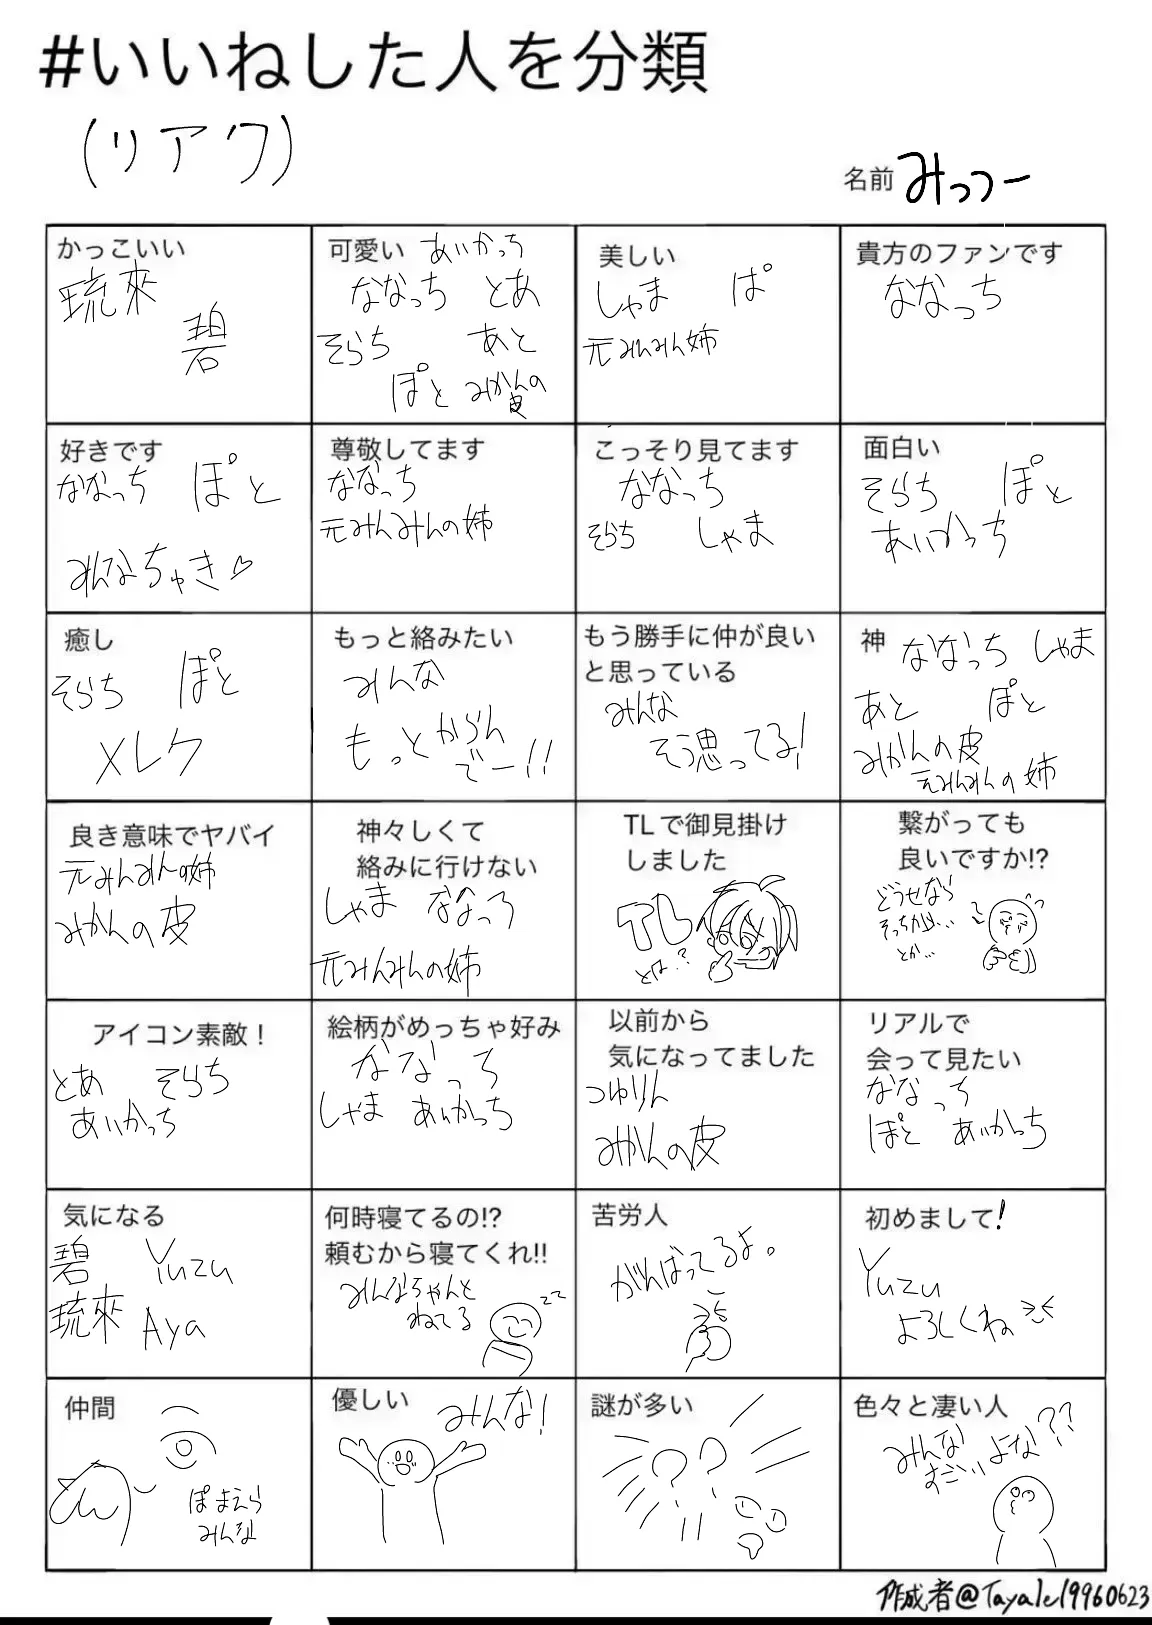 #いいねした人を分類
(リアク)
名前 みっつー
かっこいい
琉來
碧
可愛い あいかっち
ななっち とあ
そらち あと
ぽと みかんの
皮
美しい
しゃま ぱ
元みんみん姉
貴方のファンです
ななっち
好きです
ななっち ぽと
みんなちゅき♡
尊敬してます
ななっち
元みんみんの姉
こっそり見てます
ななっち
そらち しゃま
面白い
そらち ぽと
あいかっち
癒し
そらち ぽと
メレク
もっと絡みたい
みんな
もっとからん
でー!!
もう勝手に仲が良い
と思っている
みんな
そう思ってる!
神 ななっち しゃま
あと ぽと
みかんの皮
元みんみんの姉
良き意味でヤバイ
元みんみんの姉
みかんの皮
神々しくて
絡みに行けない
しゃま ななっち
元みんみんの姉
TLで御見掛け
しました
TL
とは..?
繋がっても
良いですか!?
どうせなら
そっちから...
とか...
アイコン素敵!
とあ そらち
あいかっち
絵柄がめっちゃ好み
ななっち
しゃま あいかっち
以前から
気になってました
つゆりん
みかんの皮
リアルで
会って見たい
ななっち
ぽと あいかっち
気になる
碧 Yuzu
琉來 Aya
何時寝てるの!?
頼むから寝てくれ!!
みんなちゃんと
ねてる
zz
苦労人
がんばってるよ。
初めまして!
Yuzu
よろしくね
仲間
ぽまえら
みんな
優しい みんな!
謎が多い
??
色々と凄い人
みんな
すごいよな??
作成者@Tayale19960623